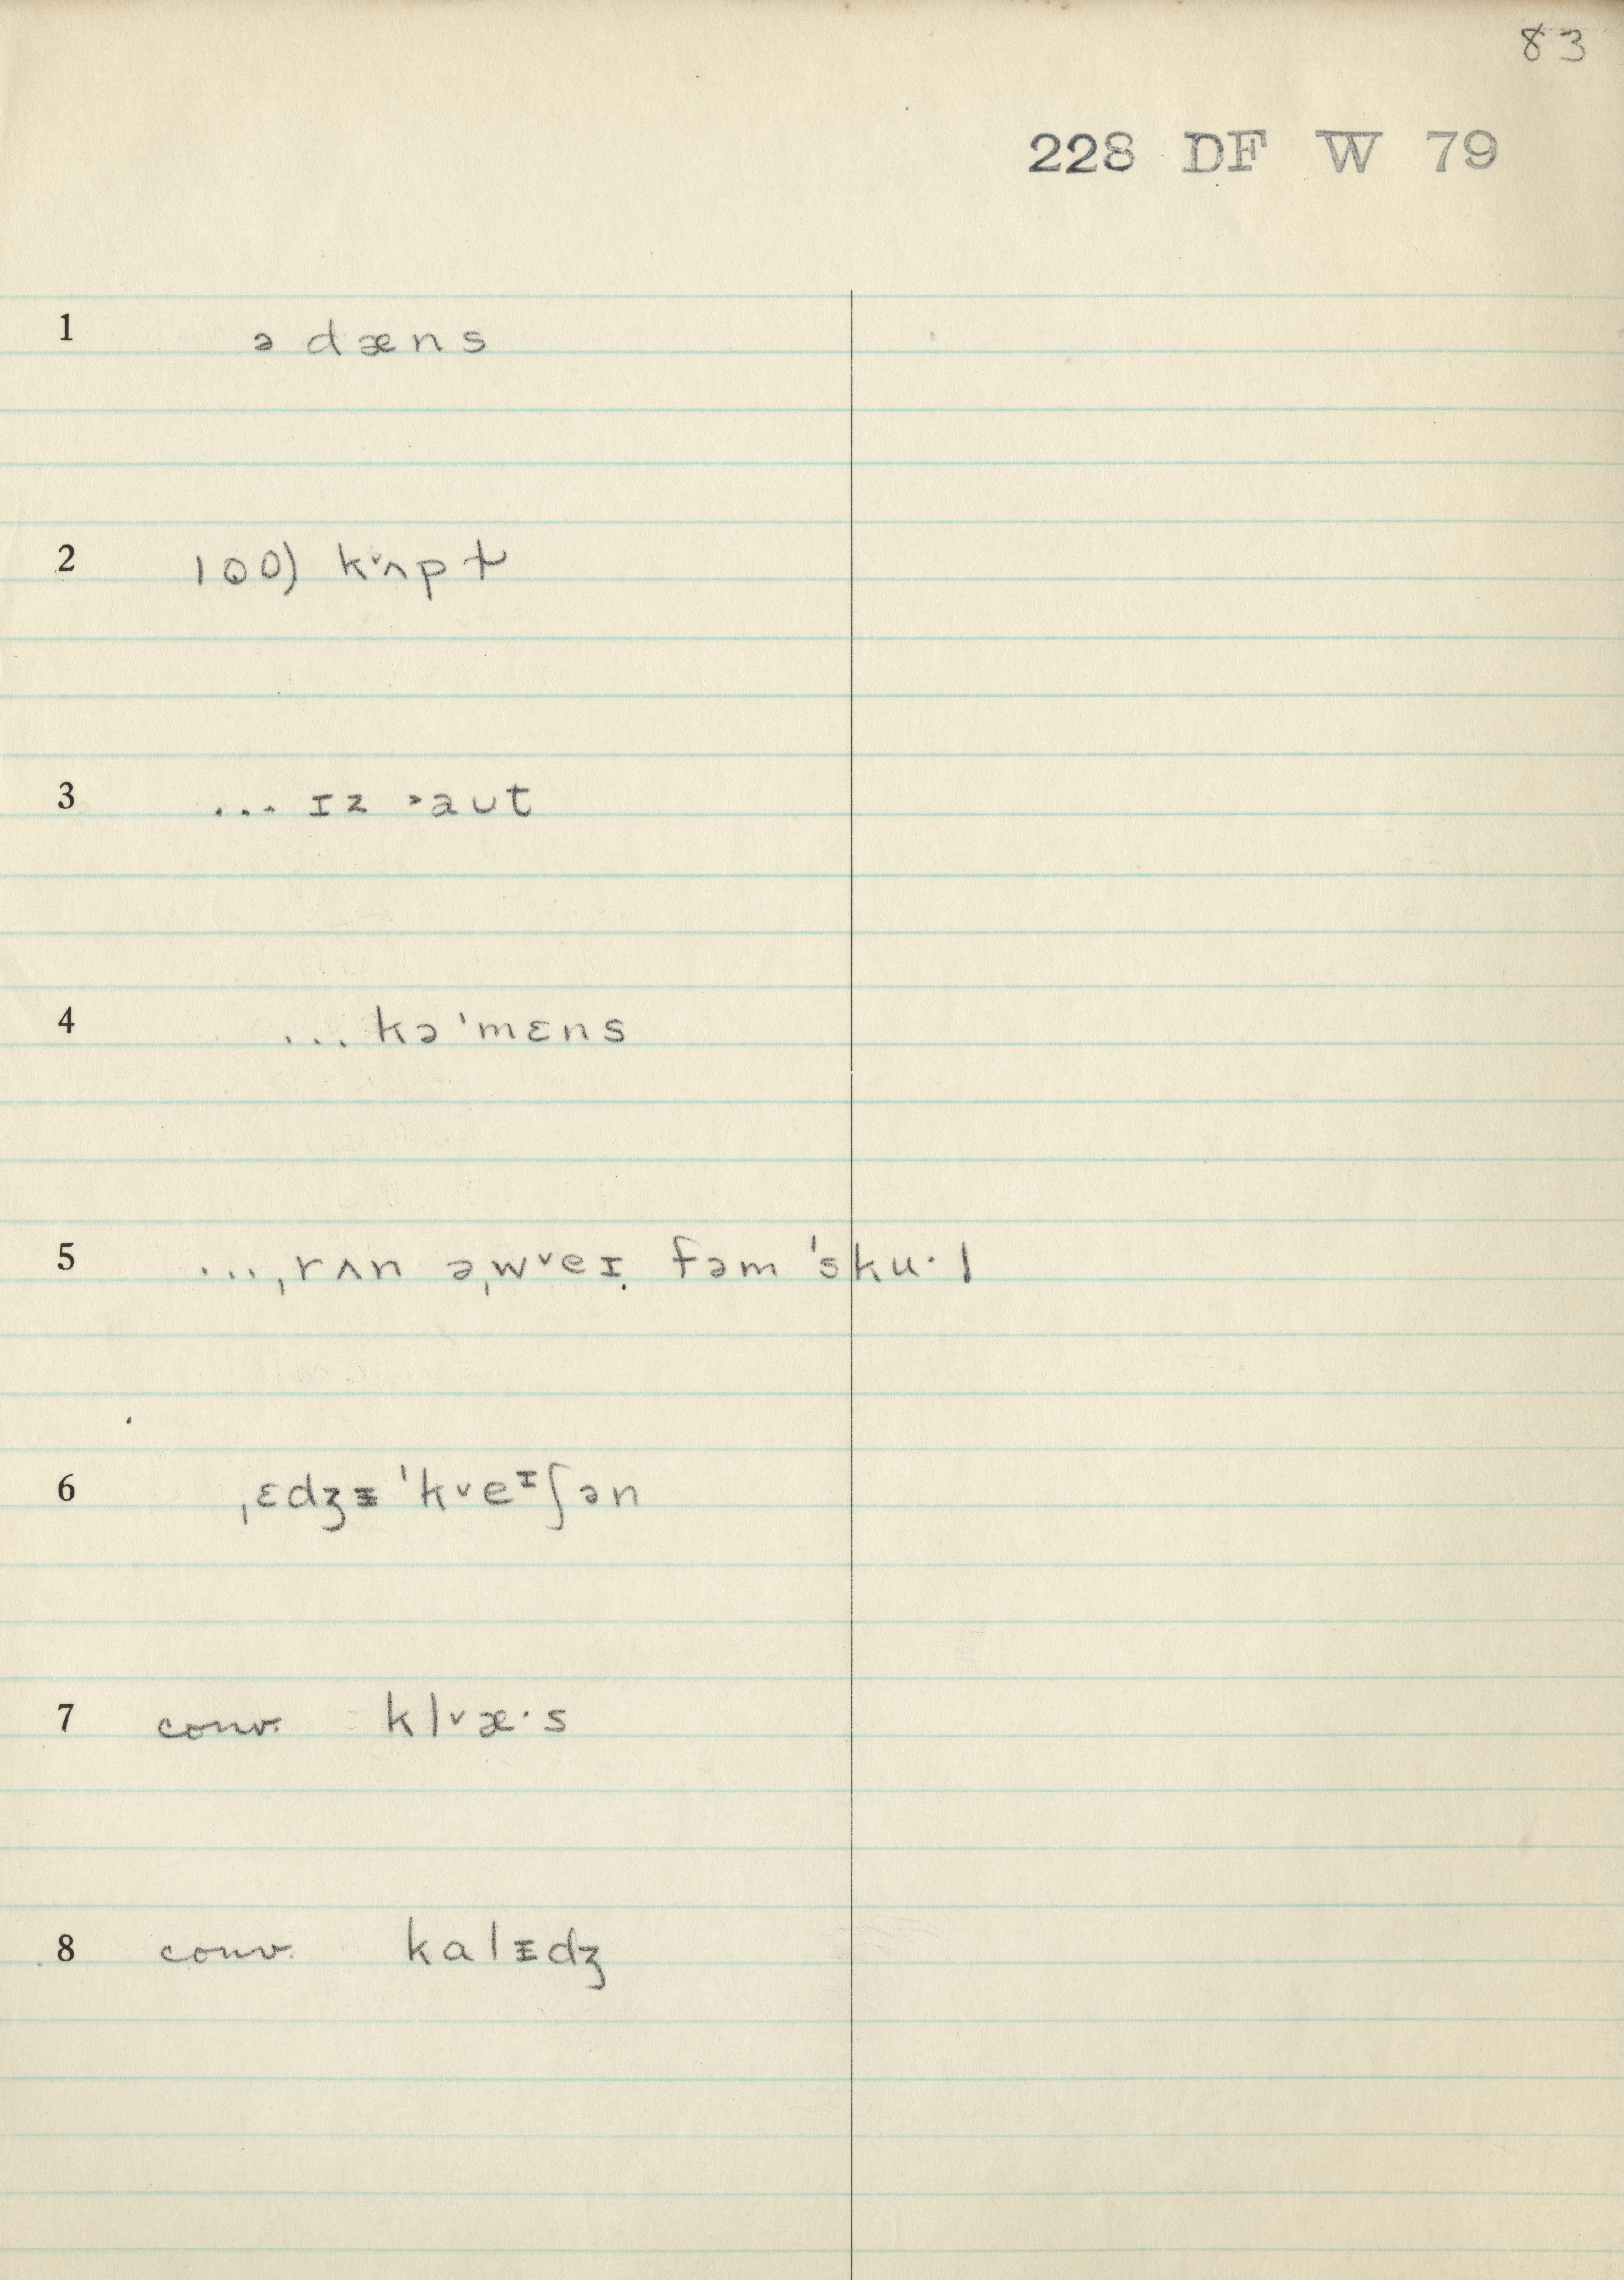 83
228 DF W 79
1 ə dæns
2 100) k˅ʌp t̬
3 ... ɪz ˃aut
4 ... kə ˈmɛns
5 ...ˌrʌn əˌw˅eɪ̣ fəm ˈsku·l
6 ˌɛdʒᵻ ˈk˅eᶦʃən
7 conv. kl˅æ·s
8 conv. kalᵻdʒ